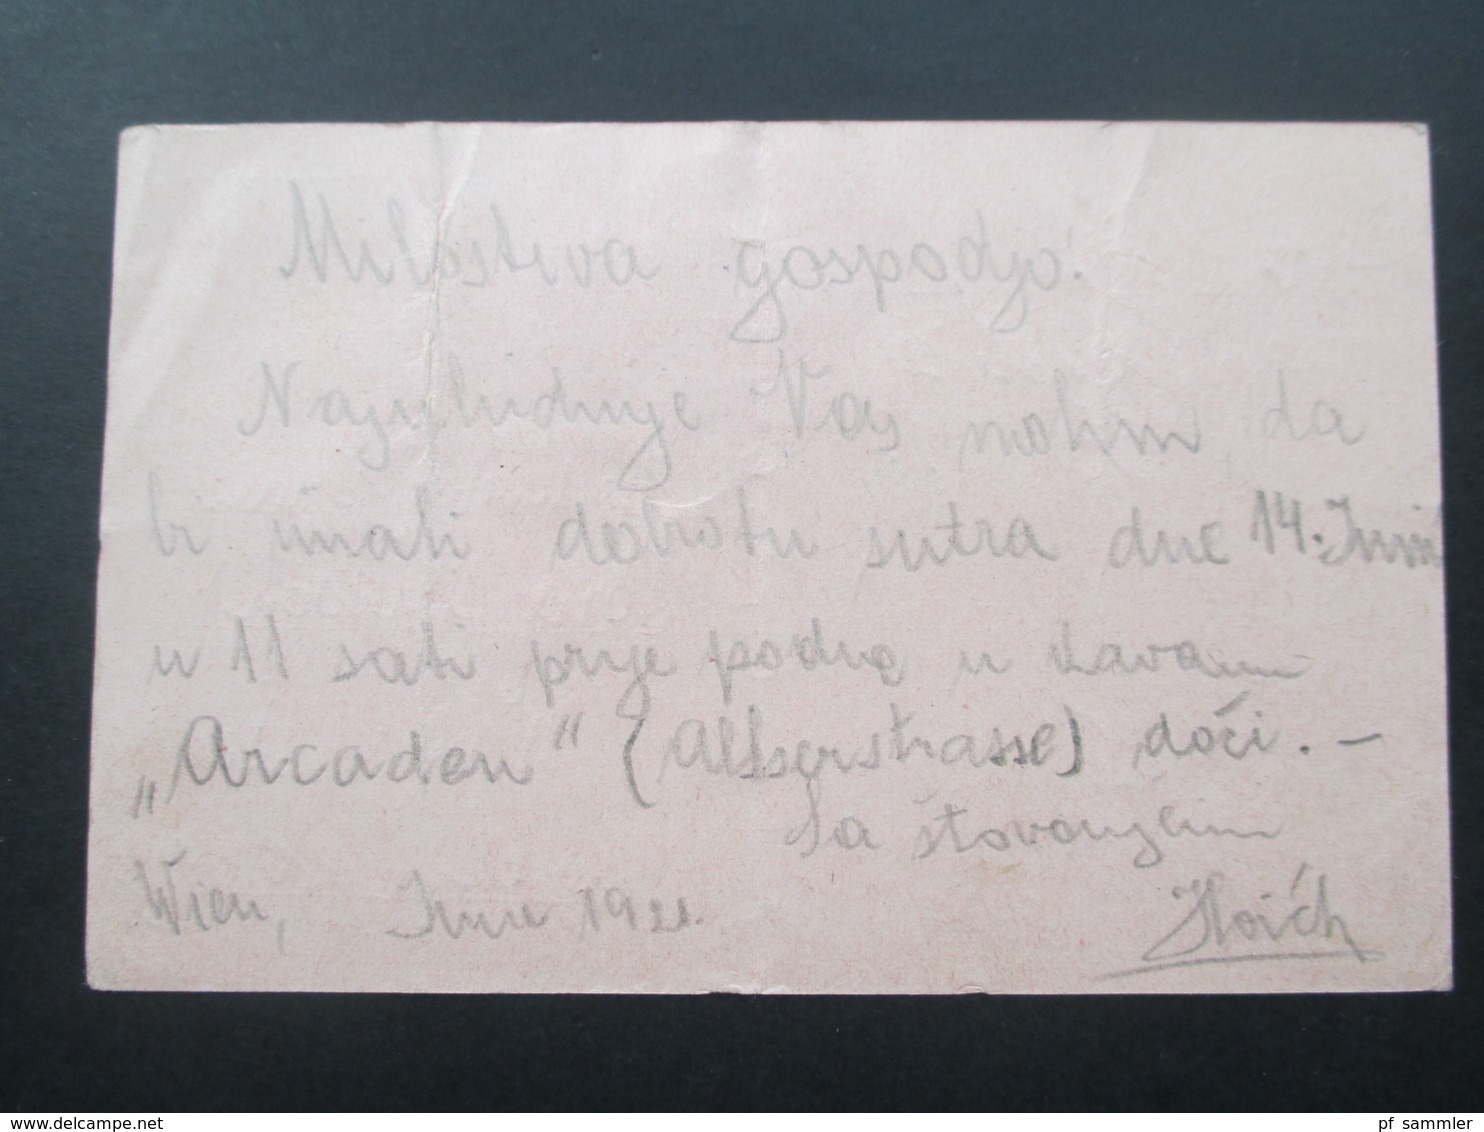 Milostiva gospodjo!
Najuludnije Vas molim, da
bi imali dobrotu sutra dne 14. Juni
u 11 sati prije podne u kavanu
„Arcaden“ (Alserstrasse) doći. —
Sa štovanjem
Wien, Juni 1921.
pf_sammler
delcampe.net